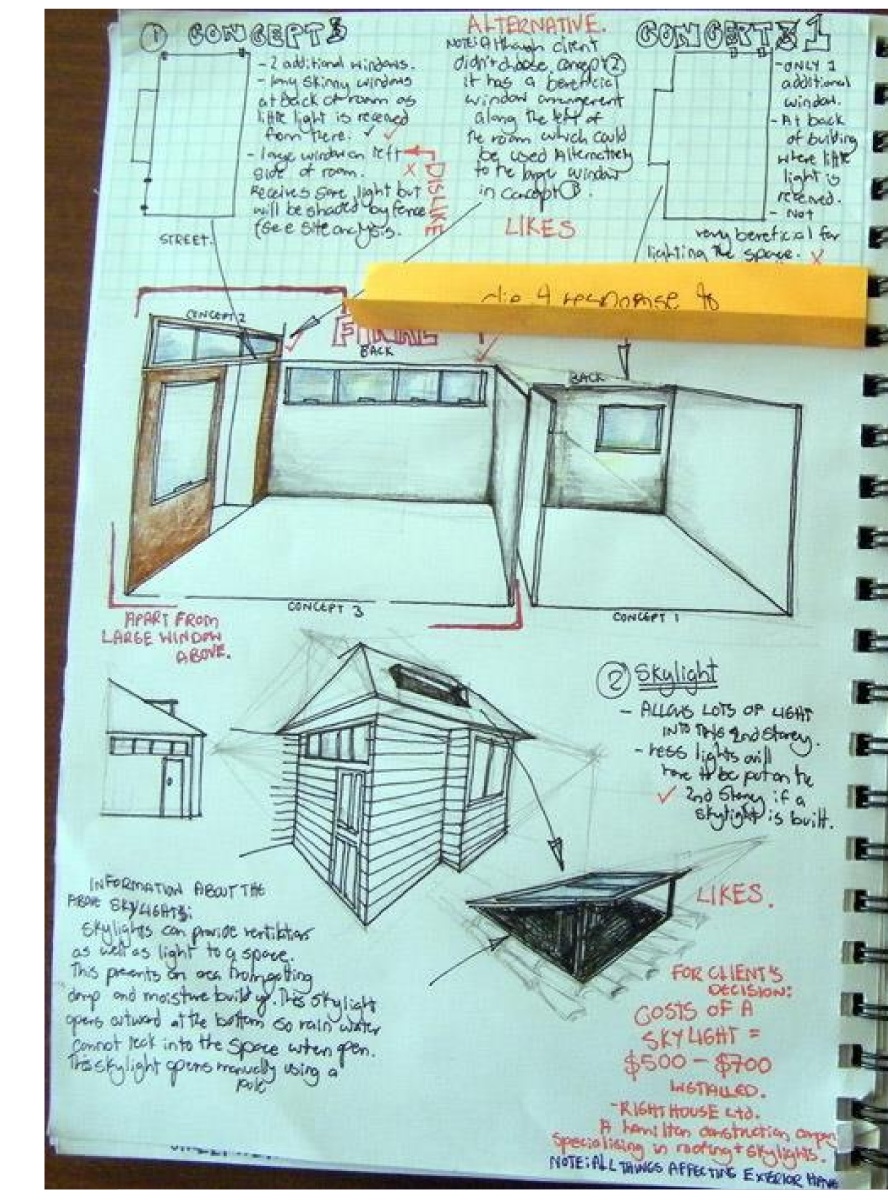 ① CONCEPT 3
- 2 additional windows.
- long skinny windows
at back of room as
little light is received
from there. ✓ ✓
- large window on left
side of room.
Receives some light but
will be shaded by fence
(see site analysis.
X
DISLIKE
STREET.
ALTERNATIVE.
NOTE: Although client
didn't choose concept ②
it has a beneficial
window arrangement
along the left of
the room which could
be used Alternatively
to the large window
in concept
LIKES
CONCEPT 1
- ONLY 1
additional
window.
- At back
of building
where little
light is
received.
- Not
very beneficial for
lighting the space. X
response to
FINAL
CONCEPT 2
BACK
BACK
CONCEPT 3
CONCEPT 1
APART FROM
LARGE WINDOW
ABOVE.
② Skylight
- ALLOWS LOTS OF LIGHT
INTO THIS 2nd STOREY.
- Less lights will
have to be put on the
✓ 2nd Storey if a
skylight is built.
INFORMATION ABOUT THE
ABOVE SKYLIGHTS:
Skylights can provide ventilation
as well as light to a space.
This prevents an area from getting
damp and moisture build up. This skylight
opens outward at the bottom so rain water
cannot leak into the space when open.
This skylight opens manually using a
pole
LIKES.
FOR CLIENT'S
DECISION:
COSTS OF A
SKYLIGHT =
$500 - $700
INSTALLED.
- RIGHTHOUSE Ltd.
A hamilton construction
specialising in roofing + skylights.
NOTE: ALL THINGS AFFECTING EXTERIOR HAVE